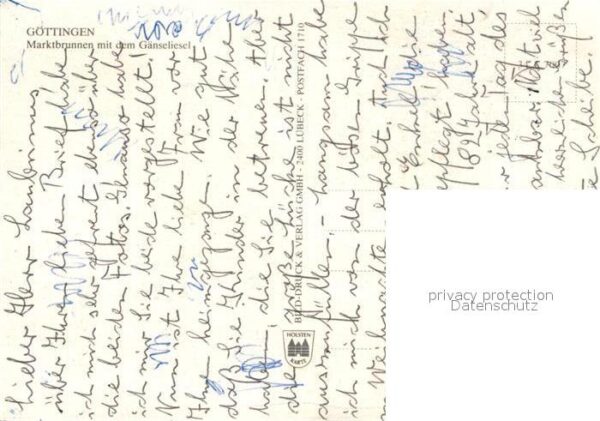 GÖTTINGEN
Marktbrunnen mit dem Gänseliesel
BILD-DRUCK & VERLAG GMBH - 2400 LÜBECK - POSTFACH 1710
HOLSTEN KARTE
Lieber Herr
über Ihren lieben Brief habe
ich mich sehr gefreut ebenso über
die beiden Fotos. Genauso habe
ich mir Sie beide vorgestellt!
Nun ist Ihre liebe Frau vor
Ihnen heimgegangen. Wie gut
daß Sie Kinder in der Nähe
haben die Sie betreuen. Aber
die große Lücke ist nicht
auszufüllen. Langsam habe
ich mich von der bösen Grippe
Weihnachten erholt. Auch ich
Enkel die
gepflegt haben.
alt
jeder Tag des
dankbar
herzliche Grüßen
privacy protection
Datenschutz